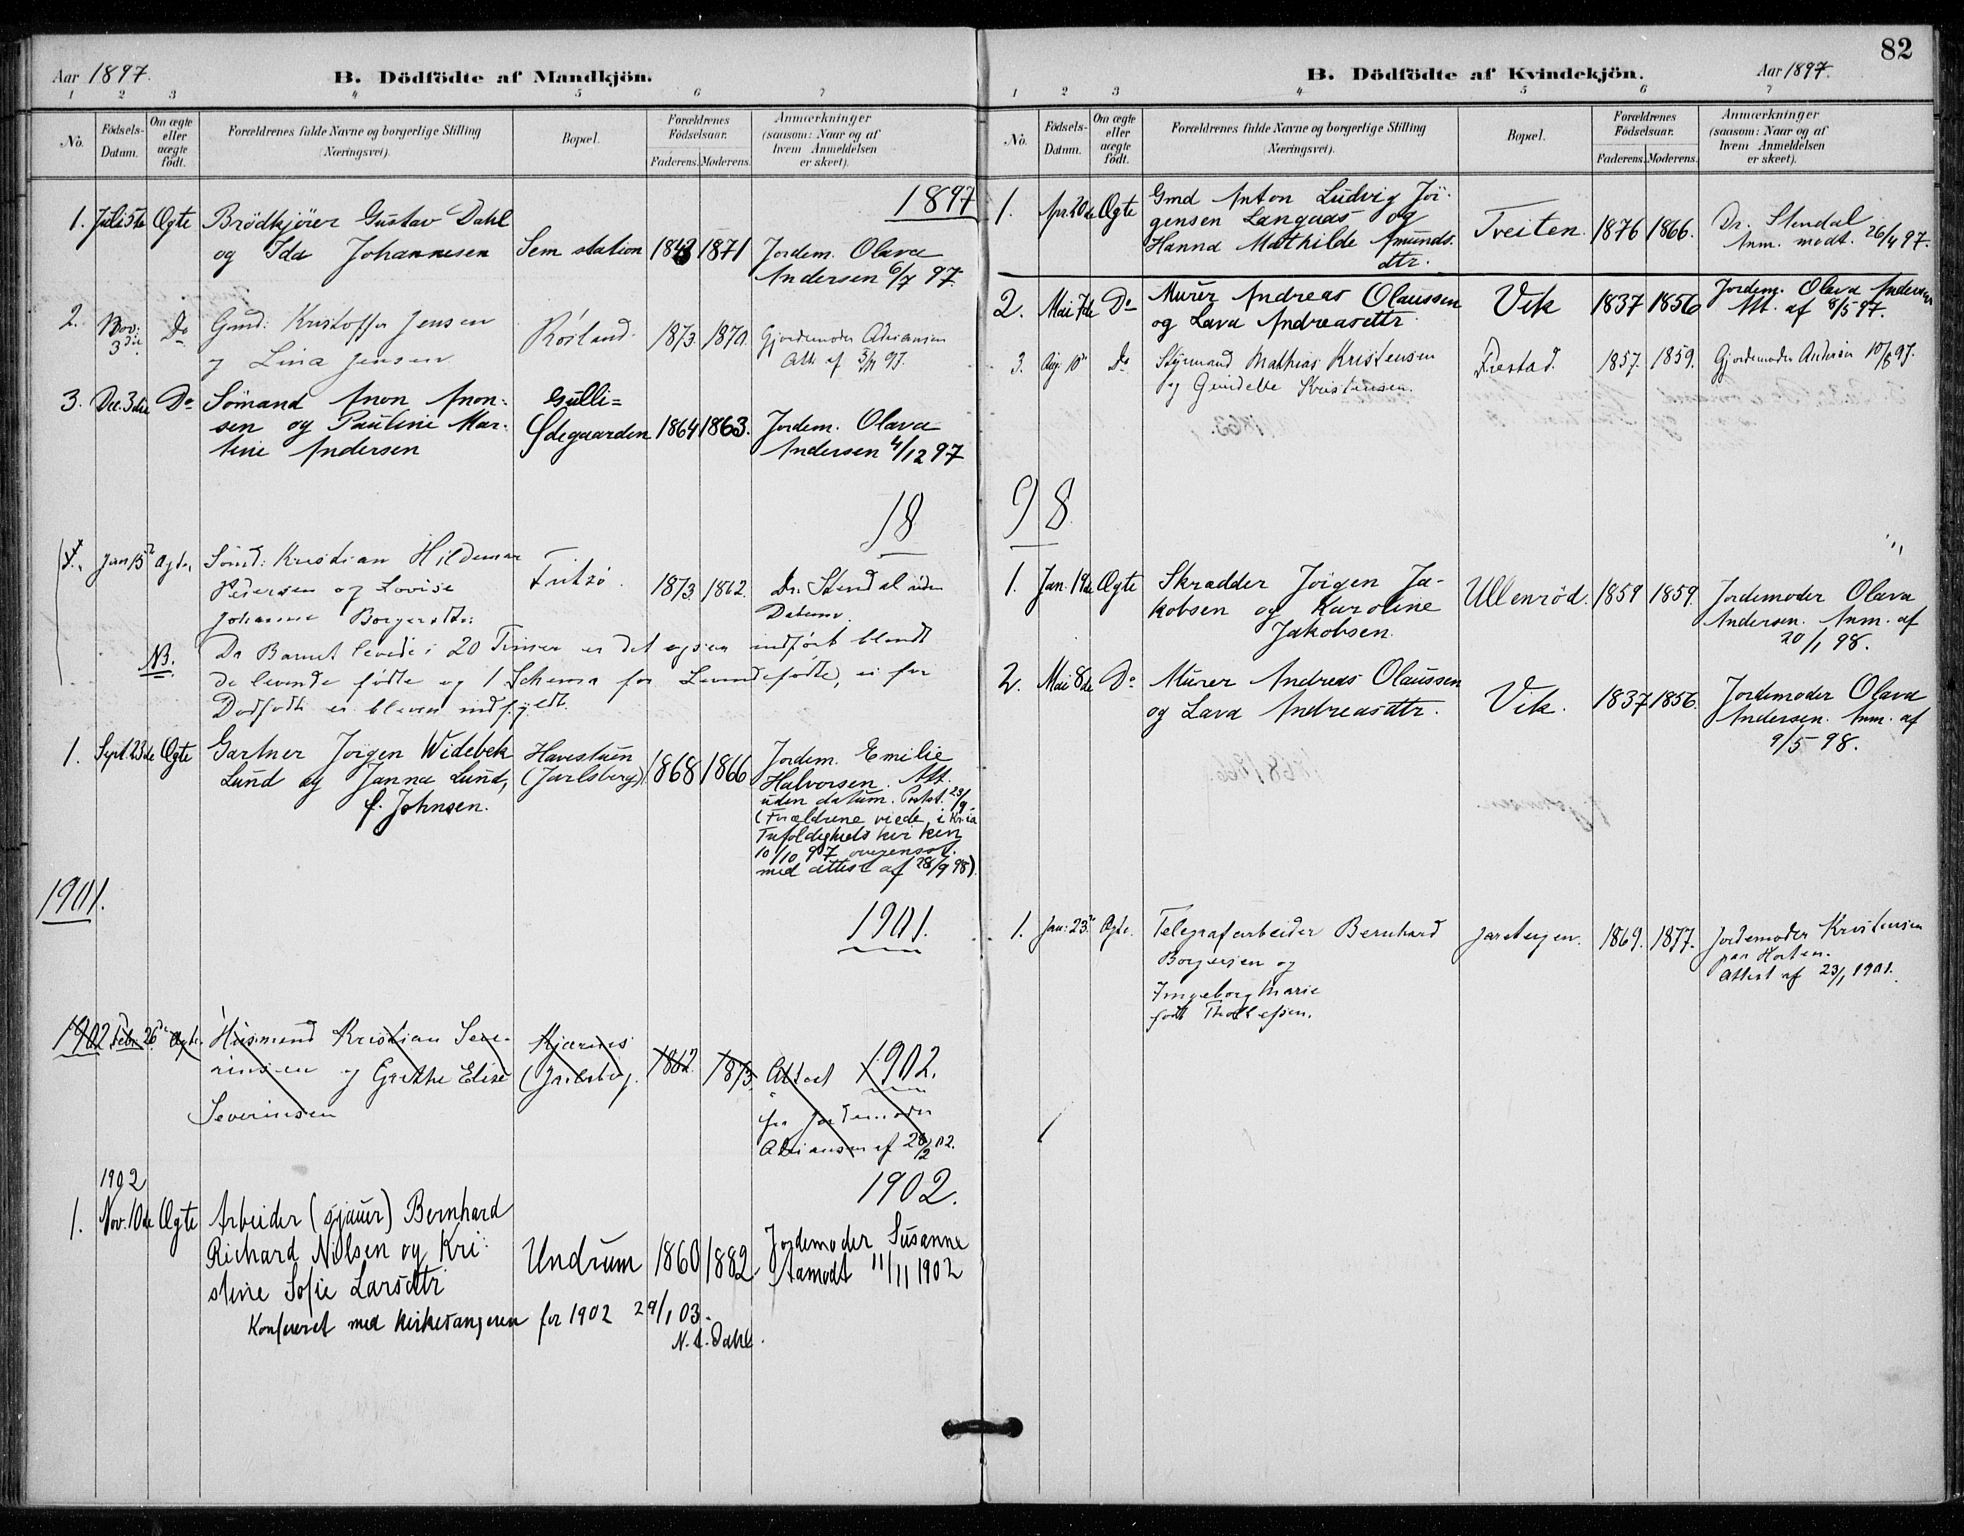 Aar 1897.
B. Dödfödte af Mandkjön.
1 2 3 4 5 6 7
No.
Födsels-
Datum.
Om ægte
eller
uægte
födt.
Forældrenes fulde Navne og borgerlige Stilling
(Næringsvei).
Bopæl.
Forældrenes
Födselsaar.
Faderens. Moderens.
Anmærkninger
(saasom: Naar og af
hvem Anmeldelsen
er skeet).
1897
1. Juli 5te Ægte Brödkjörer Gustav Dahl
og Ida Johannesen
Sem station 1843 1871 Jordem. Olava
Andersen 6/7 97.
2. Nov: 3die Do Gmd: Kristoffer Jensen
og Lina Jensen
Rösland. 1873. 1870. Gjordemoder Adriansen
Att. af 5/11 97.
3. Dec. 3die Do Sömand Anon Anon-
sen og Pauline Mar-
tine Andersen
Gulli=
Ødegaarden 1864 1863. Jordem. Olava
Andersen 4/12 97
18
Jan 15 Ægte Sömd: Kristian Hildemar
Pedersen og Lovise
Johanne Borgersdtr:
1873. 1862. Dr. Stendal uden
Datum.
NB. Da Barnet levede i 20 Timer er det ogsaa indfört blandt
de levende födte og 1 Schema for Levendefödte, ei for
Dodfodte er bleven udfyldt.
1. Sept. 23de Ægte Gartner Jörgen Widebek
Lund og Janna Lund,
f. Johnsen.
Havestuen
(Jarlsberg) 1868 1866 Jordem. Emilie
Halvorsen. Att.
uden datum. Postst. 23/9.
(Forældrene viede i Kr.ia
Trefoldigheds kirken
10/10 97 overensst.
med attest af 28/9 98).
1901.
1901.
1902 Febr. 26 Ægte Husmand Kristian Seve-
rinsen og Grethe Elise
Severinsen
Kjærnes
(Jarlsberg. 1862. 1873. Attest 1902.
fra Jordemoder
Adriansen af 28/2 02.
1902
1902.
1. Nov. 10de Ægte Arbeider (sjauer) Bernhard
Richard Nilsen og Kri-
stine Sofie Larsdtr
Undrum 1860 1882. Jordemoder Susanne
Aamodt 11/11 1902
Konfereret med Kirkesangeren for 1902 29/1 03.
N. A. Dahl.
82
B. Dödfödte af Kvindekjön.
Aar 1897.
1 2 3 4 5 6 7
No.
Födsels-
Datum.
Om ægte
eller
uægte
födt.
Forældrenes fulde Navne og borgerlige Stilling
(Næringsvei).
Bopæl.
Forældrenes
Födselsaar.
Faderens. Moderens.
Anmærkninger
(saasom: Naar og af
hvem Anmeldelsen
er skeet).
1. Apr. 20de Ægte Gmd Anton Ludvig Jör-
gensen Langaas og
Hanna Mathilde Amunds-
dtr.
Tveiten. 1876 1866. Dr. Stendal
Anm. modt. 26/4 97.
2. Mai 7de Do Murer Andreas Olaussen
og Lava Andreasdtr
Vik 1837 1856 Jordem. Olava Andersen
Att. af 8/5 97.
3. Aug. 10de Do Styrmand Mathias Kristensen
og Gundelle Kristensen.
Frestad. 1857. 1859. Gjordemoder Andersen 10/8 97.
98
1. Jan. 19de Ægte Skrædder Jörgen Ja-
kobsen og Karoline
Jakobsen.
Ullenröd. 1859 1859. Jordemoder Olava
Andersen. Anm. af
20/1 98.
2. Mai 8de Do Murer Andreas Olaussen
og Lava Andreasdtr.
Vik. 1837 1856. Jordemoder Olava
Andersen. Anm. af
9/5 98.
1. Jan: 23de Ægte. Telegrafarbeider Bernhard
Borgersen og
Ingeborg Marie
født Thollefsen.
Jareteigen. 1869. 1877. Jordemoder Kristensen
paa Horten.
Attest af 23/1 1901.